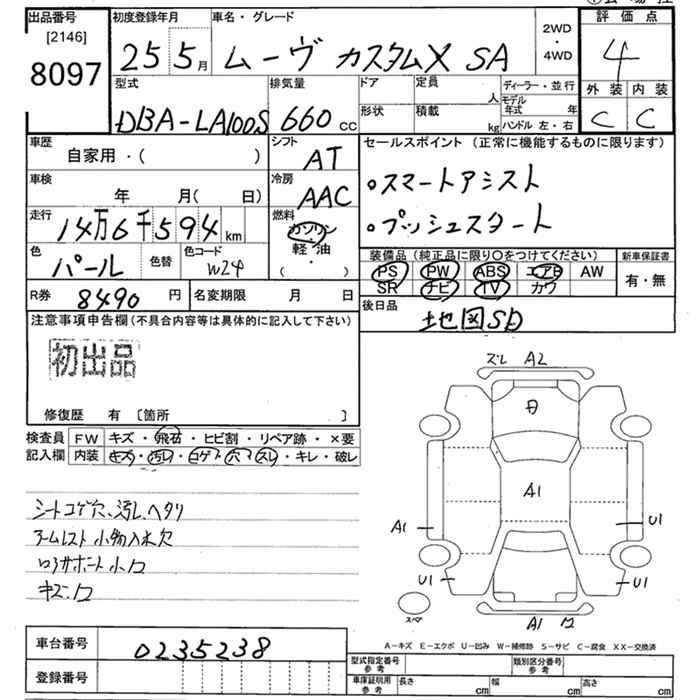 出品番号
[2146]
8097
初度登録年月
25 5月
車名・グレード
ムーヴ カスタムX SA
2WD
・
4WD
評価点
4
外装 内装
C C
型式
DBA-LA100S
排気量
660 cc
ドア
形状
定員 人
積載 kg
ディーラー・並行
モデル年式 年
ハンドル 左・右
車歴
自家用・( )
シフト
AT
セールスポイント (正常に機能するものに限ります)
。スマートアシスト
。プッシュスタート
車検
年 月( 日)
冷房
AAC
走行
14万6千594km
燃料
ガソリン
軽・油
( ・ )
色
パール
色替
色コード
W24
装備品 (純正品に限り○をつけてください)
PS PW ABS エアB AW
SR ナビ TV カワ
新車保証書
有・無
R券 8490 円
名変期限 月 日
後日品
地図SD
注意事項申告欄(不具合内容等は具体的に記入して下さい)
初出品
修復歴 有 〔箇所 〕
検査員
記入欄
FW キズ・飛石・ヒビ割・リペア跡・×要
内装 キズ・汚レ・コゲ・穴・スレ・キレ・破レ
シートコゲ穴、汚レ、ヘタリ
アームレスト小物入れ欠
ロアサポート小ワ
キズ・ワ
ズレ A2
A1
A1
U1
U1
U1
スペア
A1 ワ
A-キズ E-エクボ U-凹み W-補修跡 S-サビ C-腐食 XX-交換済
車台番号
0235238
登録番号
型式指定番号
参考
類別区分番号
参考
車庫証明用
参考
長さ cm
幅 cm
高さ cm